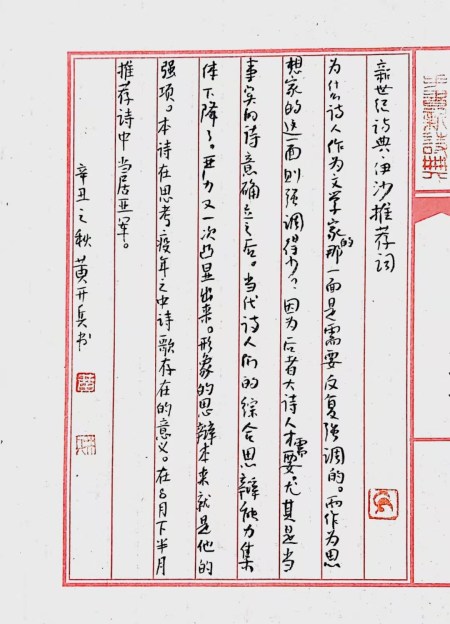 新世纪诗典·伊沙推荐词
为什么诗人作为文学家的那一面是需要反复强调的。而作为思
想家的这一面则强调得少？因为后者大诗人才需要。尤其是当
事实的诗意确立之后。当代诗人们的综合思辩能力集
体下降了。亚力又一次凸显出来。形象的思辩本来就是他的
强项。本诗在思考疫年之中诗歌存在的意义。在8月下半月
推荐诗中当居亚军。
辛丑之秋 黄开兵书